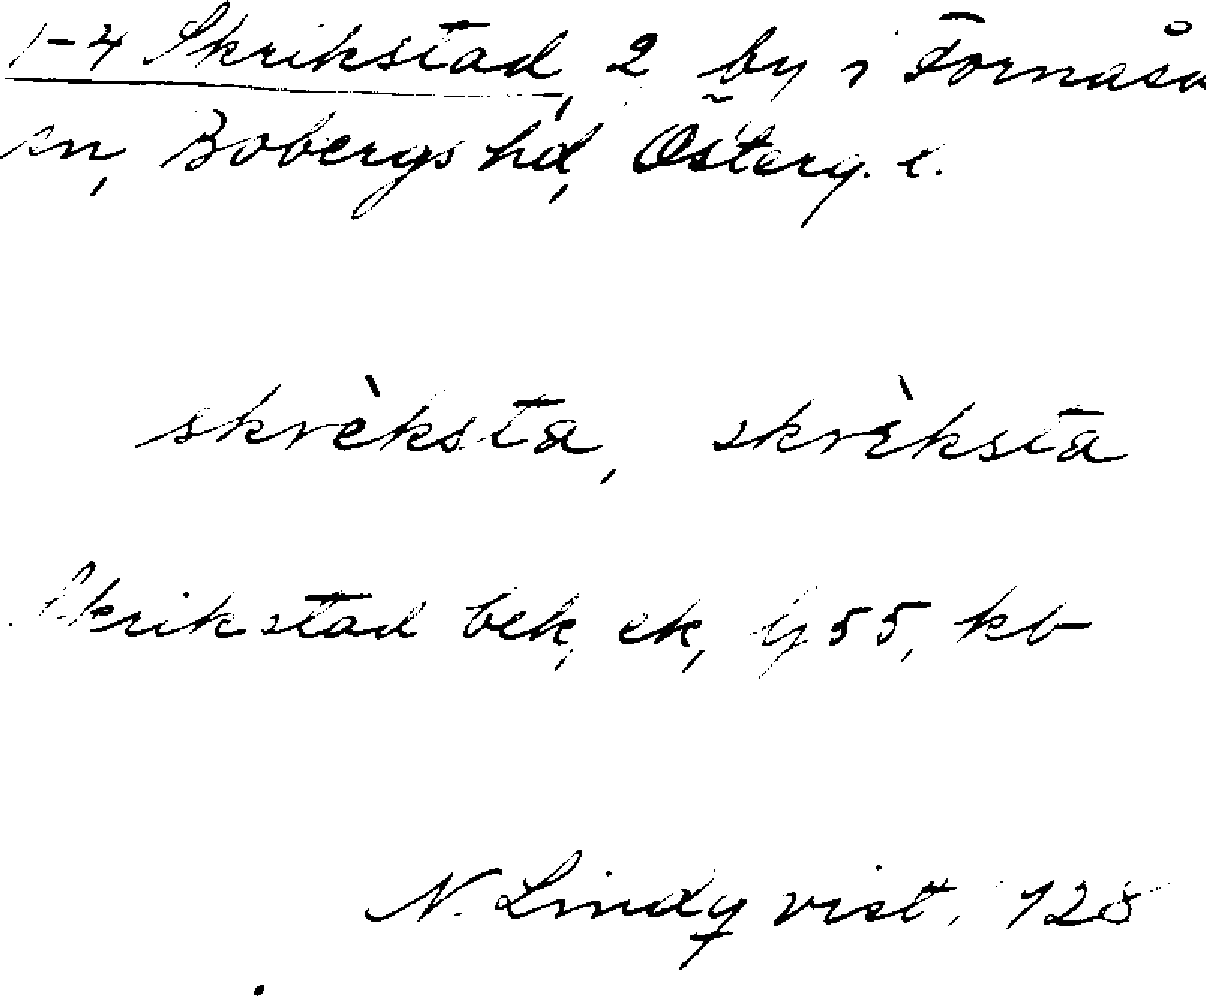 1-4 Skrikstad, 2 by i Fornåsa
sn, Bobergs hd, Österg. l.
skrèksta, skrèksta
Skrikstad bek, ek, Gj 55, kb
N. Lindqvist. 128